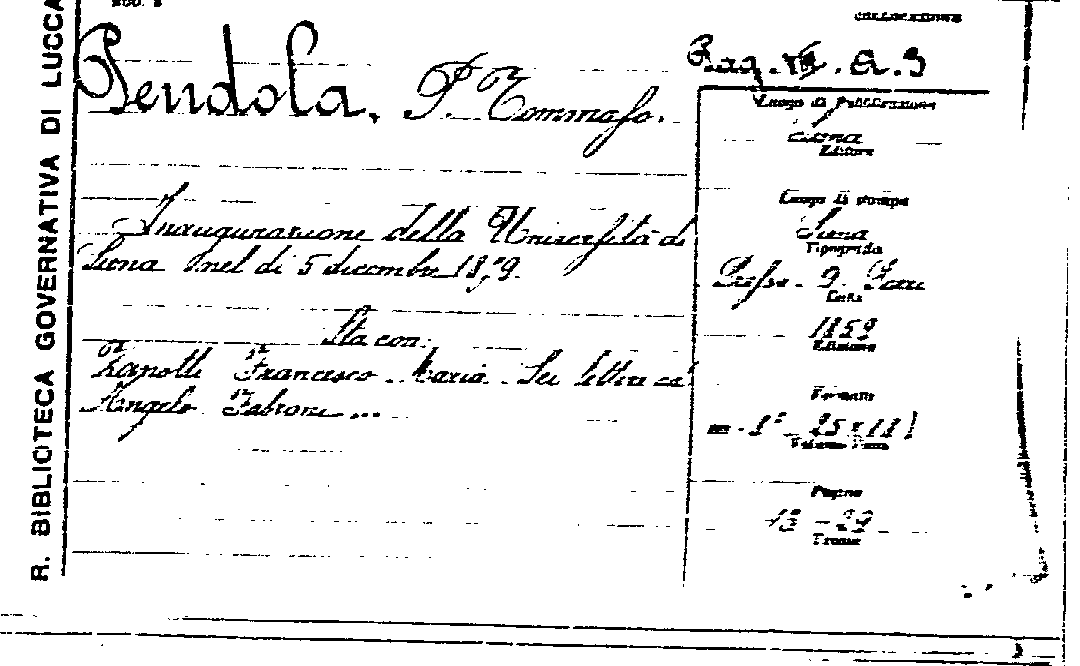 R. BIBLIOTECA GOVERNATIVA DI LUCCA
MOD. 8
COLLOCAZIONE
Pendola, P. Tommaso.
Luogo di Pubblicazione
Siena
Editore
Inaugurazione della Università di
Siena nel dì 5 dicembre 1859.
Luogo di stampa
Siena
Tipografia
Data
1859
Edizione
Sta con:
Zanotti Francesco Maria. Sei lettere ad
Angelo Fabroni ...
Formato
in-8° 25x18
Pagine
29